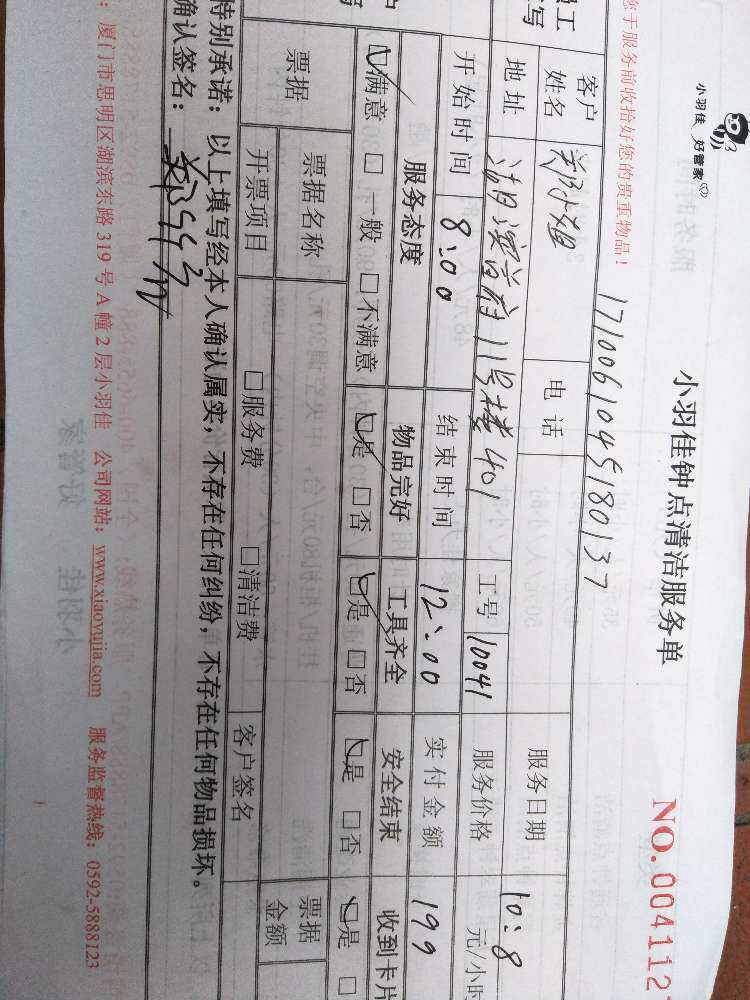 小羽佳 好管家
小羽佳钟点清洁服务单
NO.004112
您于服务前收拾好您的贵重物品!
1710061045180137
客户姓名 郑小姐 电话 服务日期 10:8
地址 湖滨首府11号楼401 工号 10041 服务价格 元/小时
开始时间 8:00 结束时间 12:00 实付金额 199
服务态度 物品完好 工具齐全 安全结束 收到卡片
☑满意 □一般 □不满意 ☑是 □否 ☑是 □否 ☑是 □否 ☑是 □
票据 票据名称 □服务费 □清洁费 客户签名 票据金额
开票项目
特别承诺:以上填写经本人确认属实,不存在任何纠纷,不存在任何物品损坏。
确认签名:
:厦门市思明区湖滨东路 319 号 A 幢 2 层小羽佳 公司网站:www.xiaoyujia.com 服务监督热线:0592-5888123